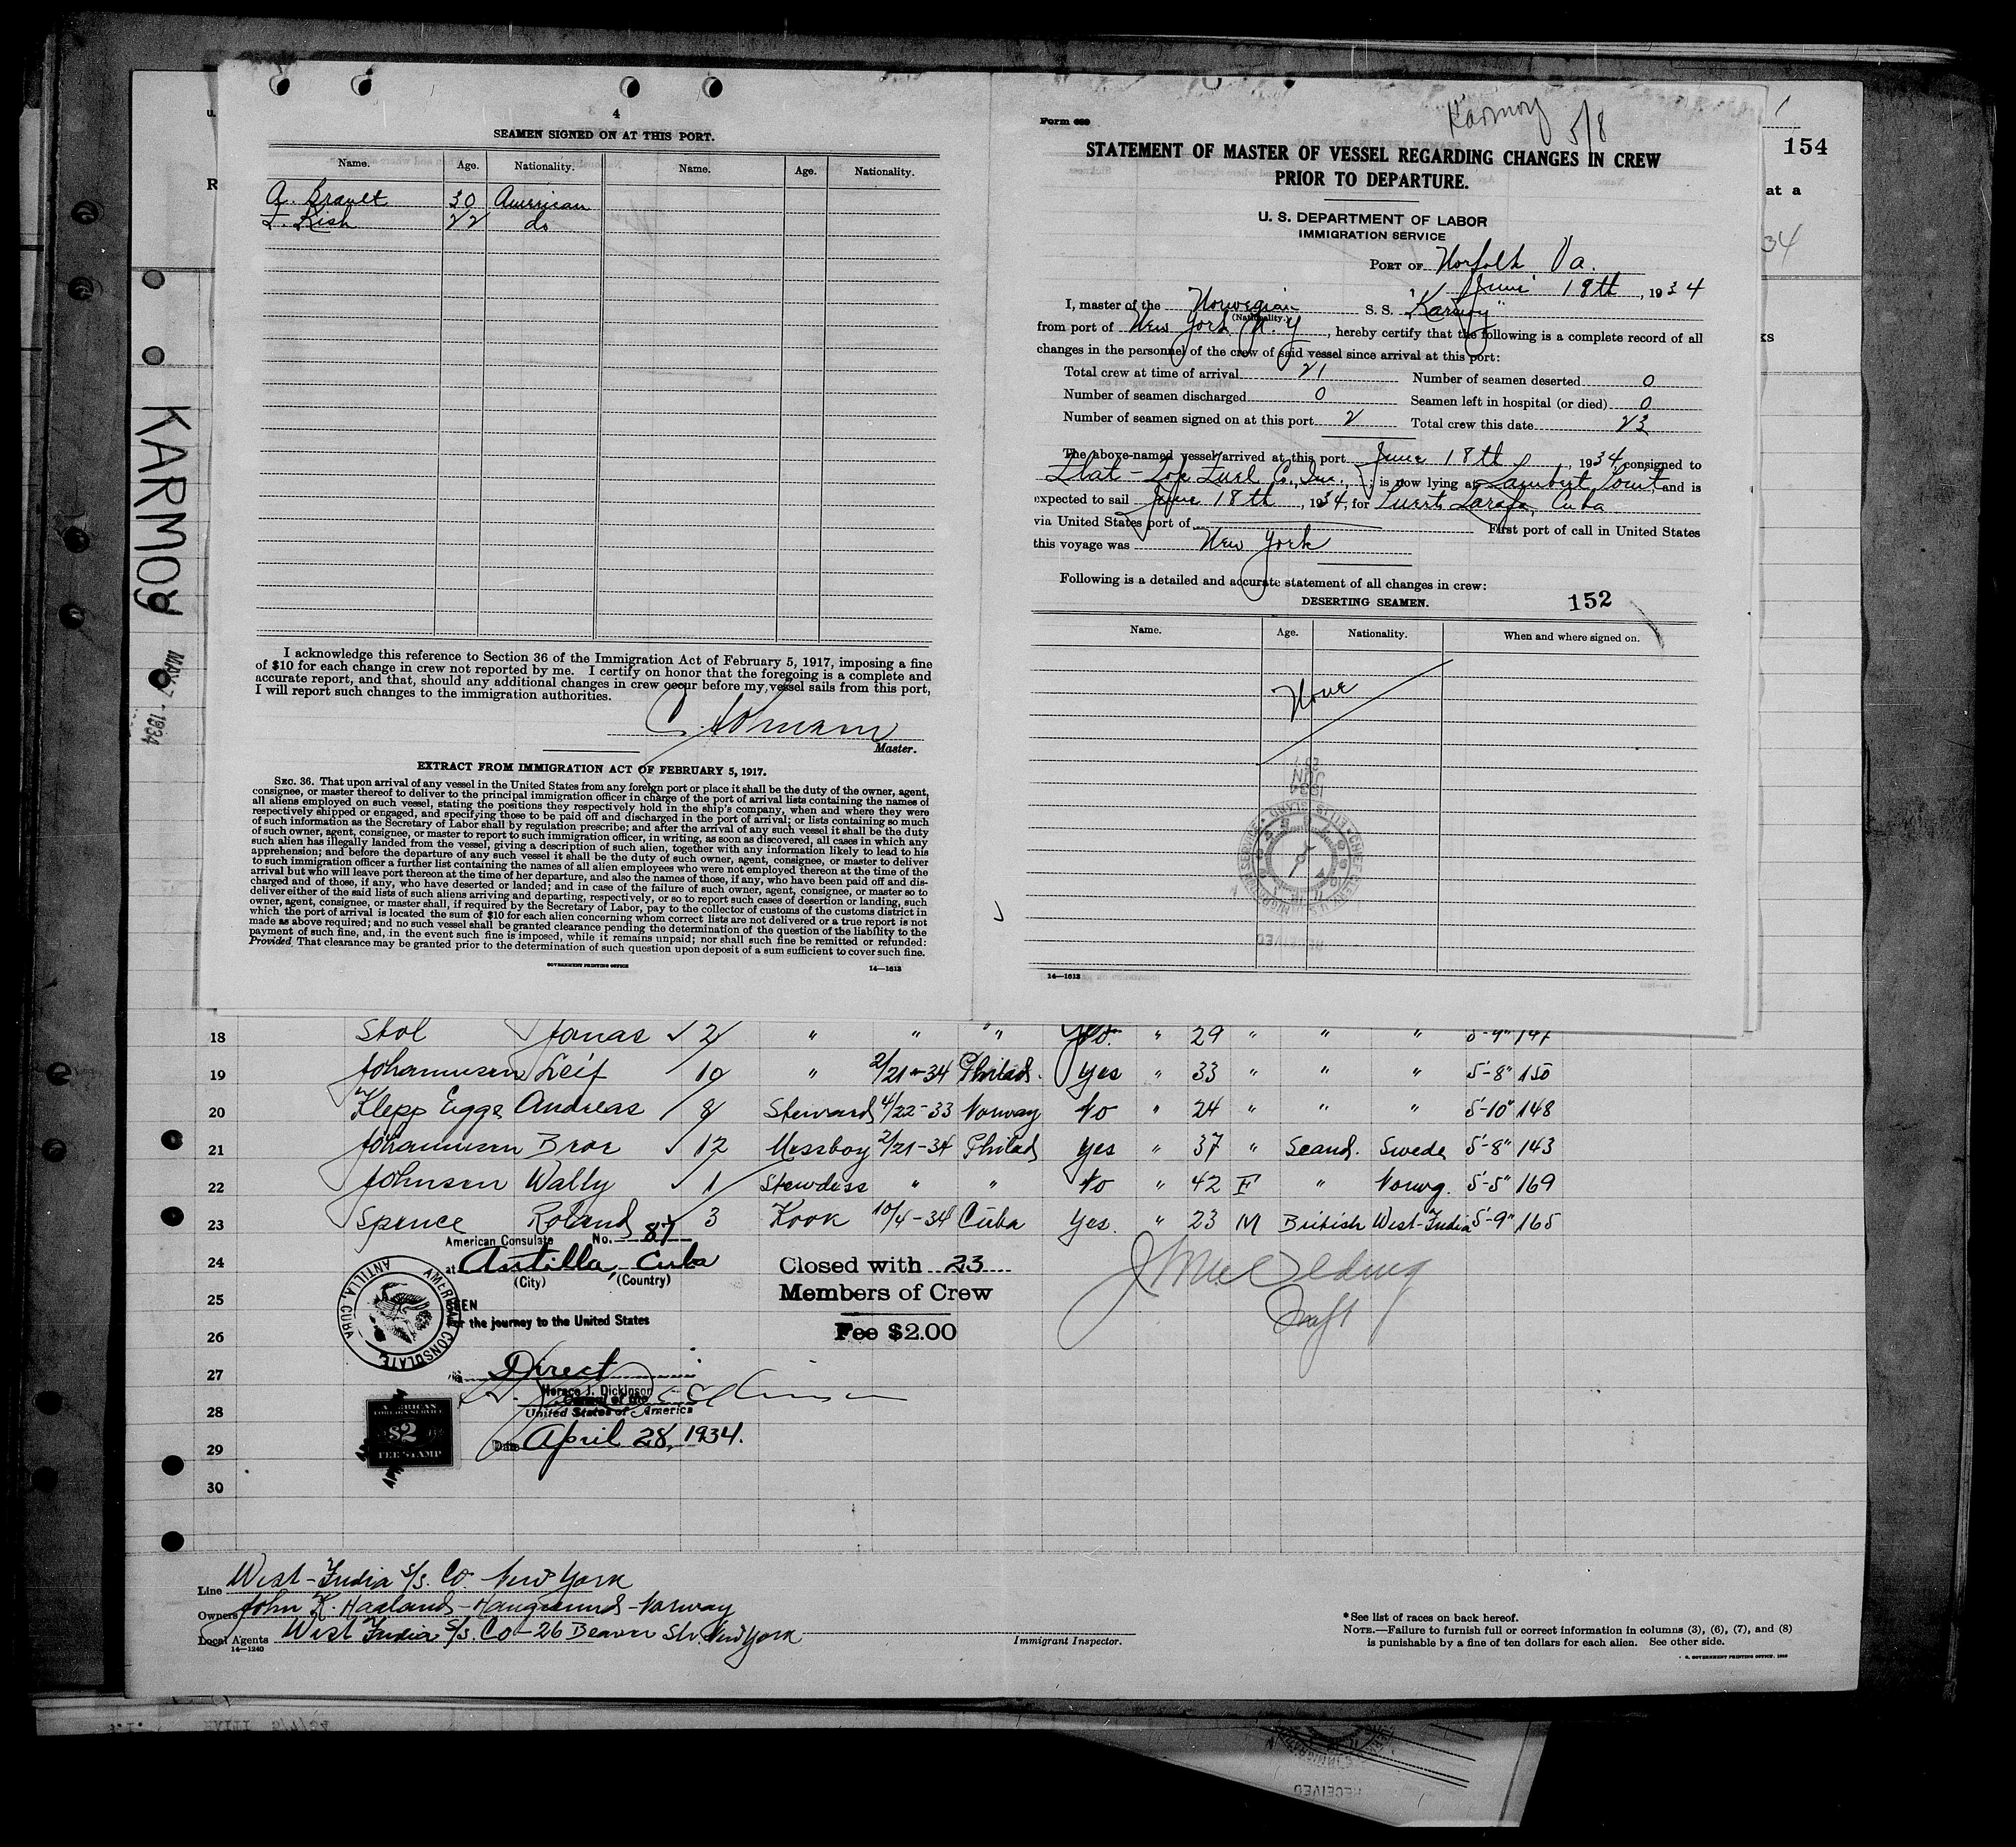 4
SEAMEN SIGNED ON AT THIS PORT.
Name. Age. Nationality. Name. Age. Nationality.
A. Brault 30 American
F. Kish 22 do
I acknowledge this reference to Section 36 of the Immigration Act of February 5, 1917, imposing a fine
of $10 for each change in crew not reported by me. I certify on honor that the foregoing is a complete and
accurate report, and that, should any additional changes in crew occur before my vessel sails from this port,
I will report such changes to the immigration authorities.
Master.
EXTRACT FROM IMMIGRATION ACT OF FEBRUARY 5, 1917.
SEC. 36. That upon arrival of any vessel in the United States from any foreign port or place it shall be the duty of the owner, agent,
consignee, or master thereof to deliver to the principal immigration officer in charge of the port of arrival lists containing the names of
all aliens employed on such vessel, stating the positions they respectively hold in the ship's company, when and where they were
respectively shipped or engaged, and specifying those to be paid off and discharged in the port of arrival; or lists containing so much
of such information as the Secretary of Labor shall by regulation prescribe; and after the arrival of any such vessel it shall be the duty
of such owner, agent, consignee, or master to report to such immigration officer, in writing, as soon as discovered, all cases in which any
such alien has illegally landed from the vessel, giving a description of such alien, together with any information likely to lead to his
apprehension; and before the departure of any such vessel it shall be the duty of such owner, agent, consignee, or master to deliver
to such immigration officer a further list containing the names of all alien employees who were not employed thereon at the time of the
arrival but who will leave port thereon at the time of her departure, and also the names of those, if any, who have been paid off and dis-
charged and of those, if any, who have deserted or landed; and in case of the failure of such owner, agent, consignee, or master so to
deliver either of the said lists of such aliens arriving and departing, respectively, or so to report such cases of desertion or landing, such
owner, agent, consignee, or master shall, if required by the Secretary of Labor, pay to the collector of customs of the customs district in
which the port of arrival is located the sum of $10 for each alien concerning whom correct lists are not delivered or a true report is not
made as above required; and no such vessel shall be granted clearance pending the determination of the question of the liability to the
payment of such fine, and, in the event such fine is imposed, while it remains unpaid; nor shall such fine be remitted or refunded:
Provided That clearance may be granted prior to the determination of such question upon deposit of a sum sufficient to cover such fine.
GOVERNMENT PRINTING OFFICE 14—1613
Karmoy 5/8
Form 689
STATEMENT OF MASTER OF VESSEL REGARDING CHANGES IN CREW
PRIOR TO DEPARTURE.
U. S. DEPARTMENT OF LABOR
IMMIGRATION SERVICE
PORT OF Norfolk Va.
June 18th, 1934
I, master of the Norwegian S. S. "Karmoy"
(Nationality.)
from port of New York N.Y, hereby certify that the following is a complete record of all
changes in the personnel of the crew of said vessel since arrival at this port:
Total crew at time of arrival 21 Number of seamen deserted 0
Number of seamen discharged 0 Seamen left in hospital (or died) 0
Number of seamen signed on at this port 2 Total crew this date 23
The above-named vessel arrived at this port June 18th, 1934, consigned to
Flat-Top Fuel Co., Inc., is now lying at Lambert Point and is
expected to sail June 18th, 1934, for Puerto Tarafa, Cuba
via United States port of First port of call in United States
this voyage was New York
Following is a detailed and accurate statement of all changes in crew:
DESERTING SEAMEN.
152
Name. Age. Nationality. When and where signed on.
None
14—1613
154
at a
34
KARMOY
MAY 7 - 1934
18 Stol Jonas 2 " " " No " 29 " " " 5-9" 147
19 Johannesen Leif 10 " 2/21-34 Philad. Yes " 33 " " " 5-8" 150
20 Klepp Egge Andreas 8 Steward 4/22-33 Norway No " 24 " " " 5-10" 148
21 Johannesen Bror 12 Messboy 2/21-34 Philad Yes " 37 " Scand. Swede 5-8" 143
22 Johnsen Wally 1 Stewdess " " No " 42 F " Norwg. 5-5" 169
23 Spence Roland 3 Kook 10/4-34 Cuba Yes. " 23 M British West-India 5-9" 165
24
25
26
27
28
29
30
American Consulate No. 87
at Antilla, Cuba
(City) (Country)
SEEN
For the journey to the United States
Direct
Horace J. Dickinson
Consul of the
United States of America
Date April 28, 1934.
AMERICAN CONSULATE ANTILLA, CUBA
AMERICAN FOREIGN SERVICE $2 FEE STAMP
Closed with 23
Members of Crew
Fee $2.00
Line West-India S/S. Co. New York
Owners John K. Haaland - Haugesund - Norway
Local Agents West India S/S. Co - 26 Beaver Str. New York
14—1240
Immigrant Inspector.
*See list of races on back hereof.
NOTE.—Failure to furnish full or correct information in columns (3), (6), (7), and (8)
is punishable by a fine of ten dollars for each alien. See other side.
RECEIVED